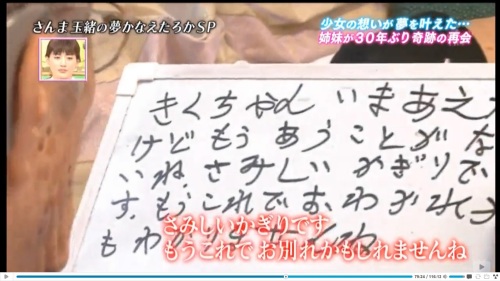 さんま玉緒の夢かなえたろかSP
少女の想いが夢を叶えた…
姉妹が30年ぶり奇跡の再会
きくちゃん いまあえた
けど もう あうことがな
いね。さみしい かぎりで
す。もうこれで おわかれ
さみしいかぎりです
もうこれで お別れかもしれませんね